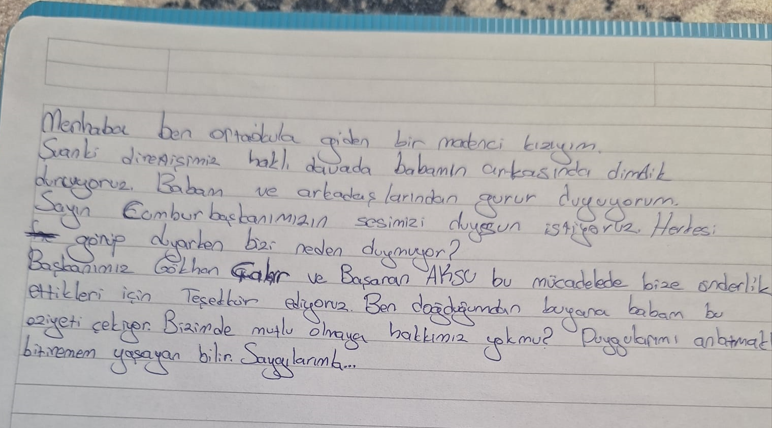 Merhaba ben ortaokula giden bir madenci kızıyım.
Suanki direnişimiz haklı davada babamın arkasında dimdik
duruyoruz. Babam ve arkadaşlarından gurur duyuyorum.
Sayın Cumburbaşkanımızın sesimizi duysun istiyoruz. Herkesi
görüp duyarken bizi neden duymuyor?
Başkanımız Gökhan ve Başaran AKSU bu mücadelede bize önderlik
ettikleri için Teşedkür ediyoruz. Ben doğduğumdan buyana babam bu
eziyeti çekiyor. Bizimde mutlu olmaya hakkımız yokmu? Duygularımı anlatmak
bitiremem yaşayan bilir. Saygılarımla...